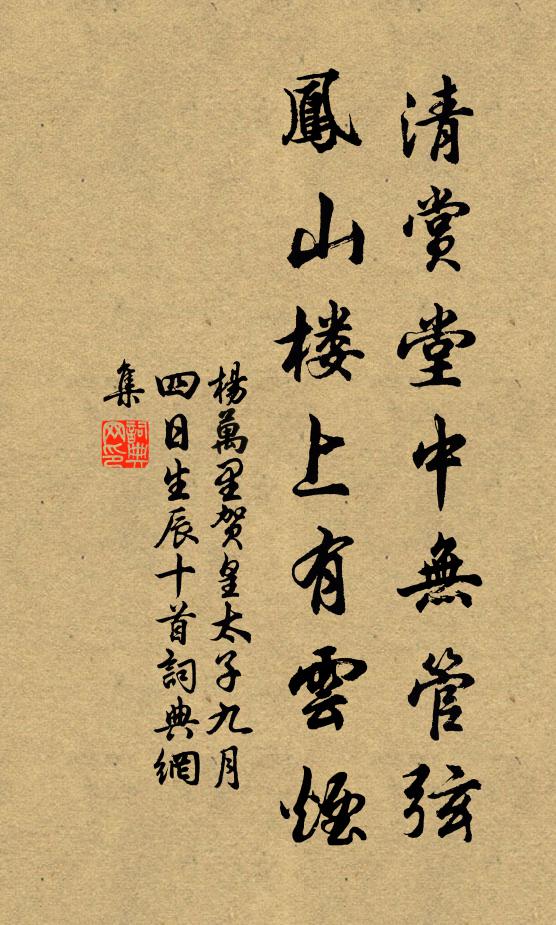 清賞堂中無管弦
鳳山楼上有雲煙
楊萬里賀皇太子九月
四日生辰十首詞典網
集
詞典网印